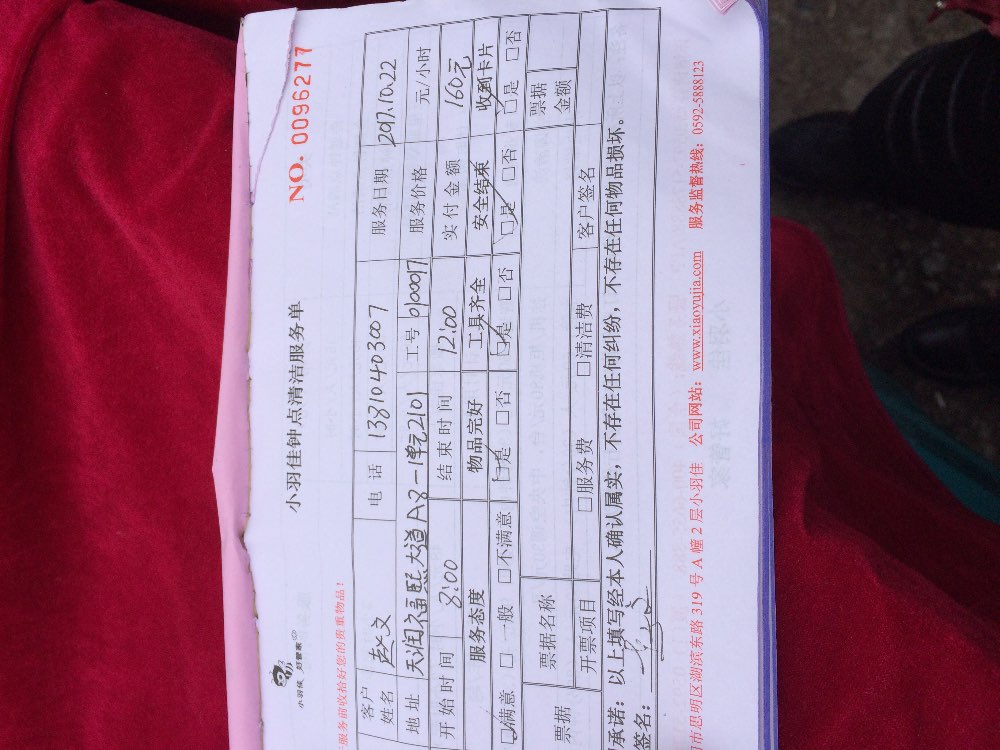 小羽佳 好管家
小羽佳钟点清洁服务单
NO. 0096277
服务前收拾好您的贵重物品!
客户姓名 赵文 电话 13810403007 服务日期 2017.10.22
地址 天润福熙大道A8一单元2101 工号 0100017 服务价格 元/小时
开始时间 8:00 结束时间 12:00 实付金额 160元
服务态度 物品完好 工具齐全 安全结束 收到卡片
☑满意 □一般 □不满意 ☑是 □否 ☑是 □否 ☑是 □否 ☑是 □否
票据 票据名称 票据金额
开票项目 □服务费 □清洁费 客户签名
承诺：以上填写经本人确认属实，不存在任何纠纷，不存在任何物品损坏。
签名：
市思明区湖滨东路 319 号 A 幢 2 层小羽佳 公司网站：www.xiaoyujia.com 服务监督热线：0592-5888123